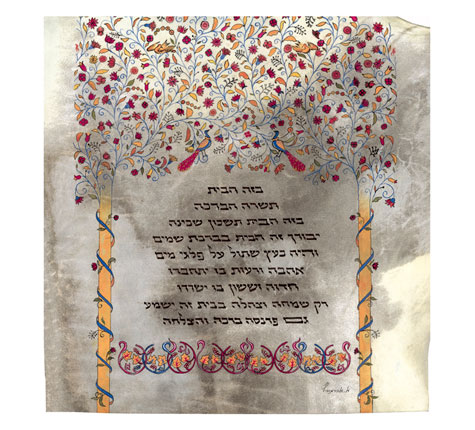 בזה הבית
תשרה הברכה
בזה הבית תשכון שכינה
יבורך זה הבית בברכת שמים
והיה כעץ שתול על פלגי מים
אהבה ורעות בו יתחברו
חדוה וששון בו ישררו
רק שמחה וצהלה בבית זה ישמע
גם פרנסה ברכה והצלחה